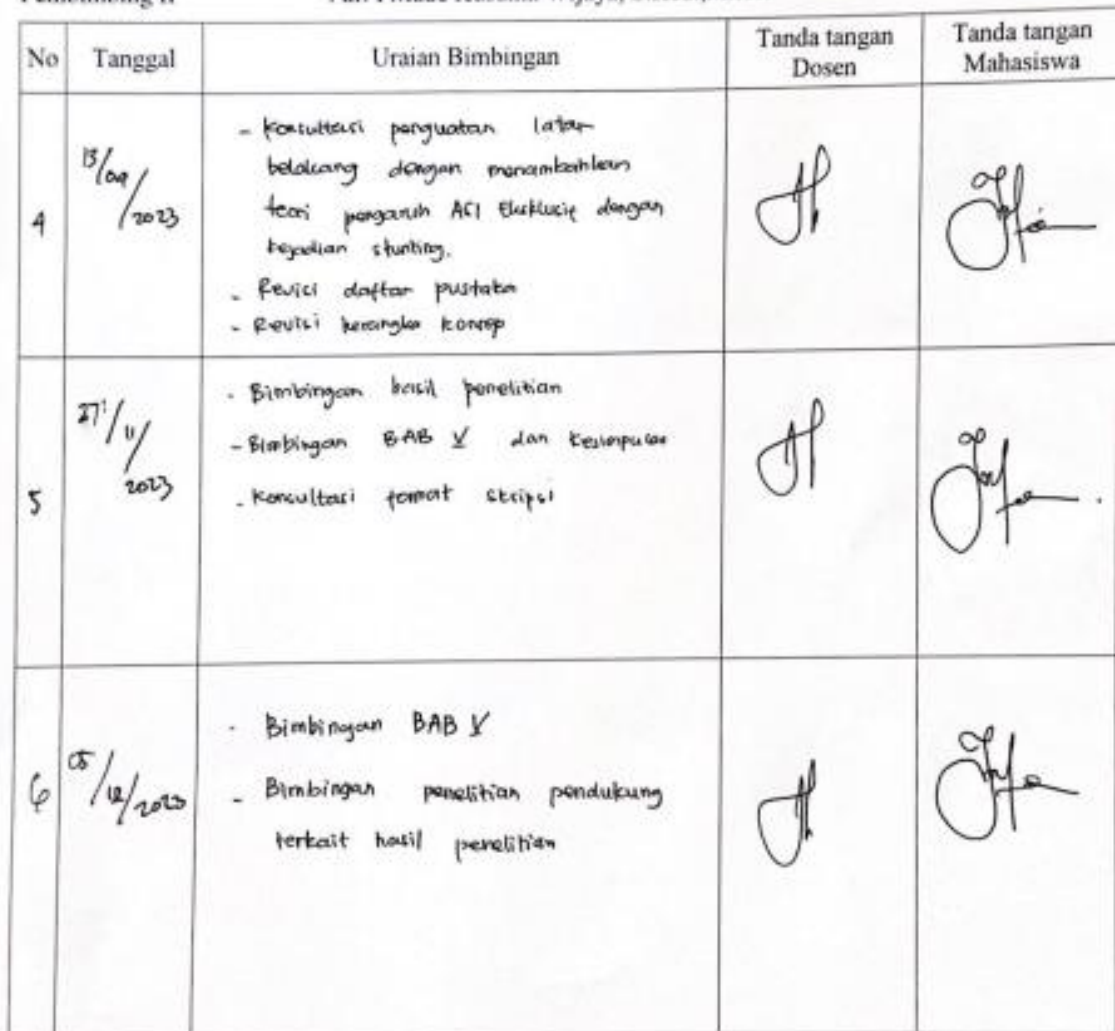 No Tanggal Uraian Bimbingan Tanda tangan Dosen Tanda tangan Mahasiswa
4 13/09/2023
- Konsultasi penguatan latar
belakang dengan menambahkan
teori pengaruh ASI Eksklusif dengan
kejadian stunting.
- Revisi daftar pustaka
- Revisi kerangka konsep
5 27/11/2023
- Bimbingan hasil penelitian
- Bimbingan BAB V dan Kesimpulan
- Konsultasi format skripsi
6 05/12/2023
- Bimbingan BAB V
- Bimbingan penelitian pendukung
terkait hasil penelitian